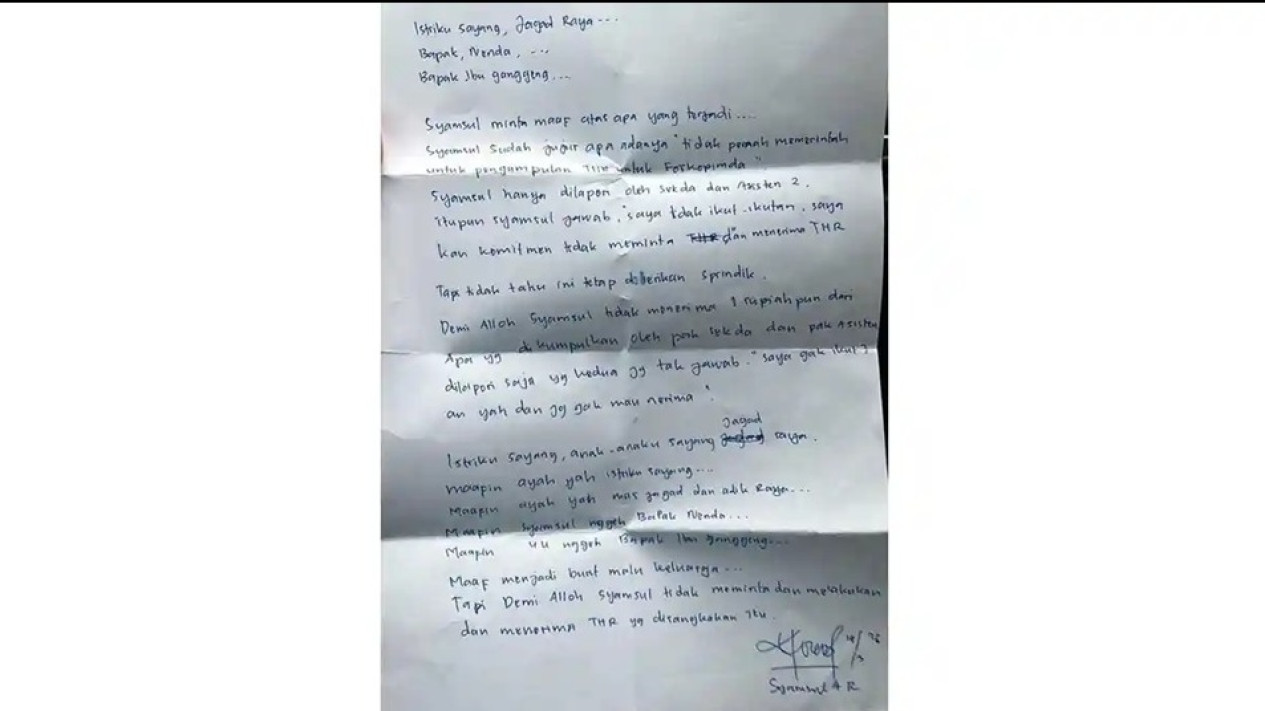 Istriku sayang, Jagad Raya...
Bapak, Nenda, ...
Bapak Ibu ganggeng...
Syamsul minta maaf atas apa yang terjadi....
Syamsul sudah jujur apa adanya "tidak pernah memerintah
untuk pengumpulan THR untuk Forkopimda"
Syamsul hanya dilapori oleh Sekda dan Asisten 2.
itupun Syamsul jawab, "saya tdak ikut-ikutan, saya
kan komitmen tdak meminta dan menerima THR
Tapi tidak tahu ini tetap diberikan sprindik.
Demi Alloh Syamsul tidak menerima 1 rupiah pun dari
Apa yg dikumpulkan oleh pak Sekda dan pak Asisten
dilapori saja yg kedua jg tak jawab. "saya gak ikut2
an yah dan jg gak mau nerima".
Istriku sayang, anak-anaku sayang Jagad saya.
maapin ayah yah istriku sayang...
Maapin ayah yah mas Jagad dan adik Raya...
Maapin Syamsul nggeh Bapak Nenda...
Maapin nggeh Bapak Ibu ganggeng...
Maaf menjadi buat malu keluarga...
Tapi Demi Alloh Syamsul tidak meminta dan melakukan
dan menerima THR yg disangkakan itu.
Syamsul A R